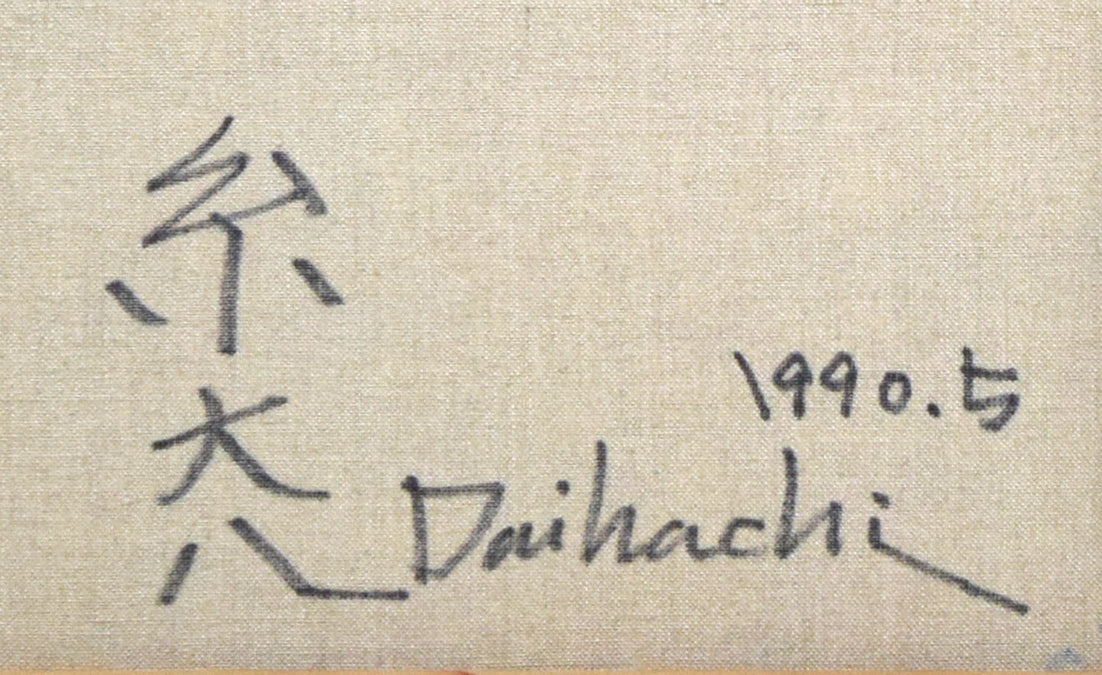 糸大八
1990.5
Daihachi